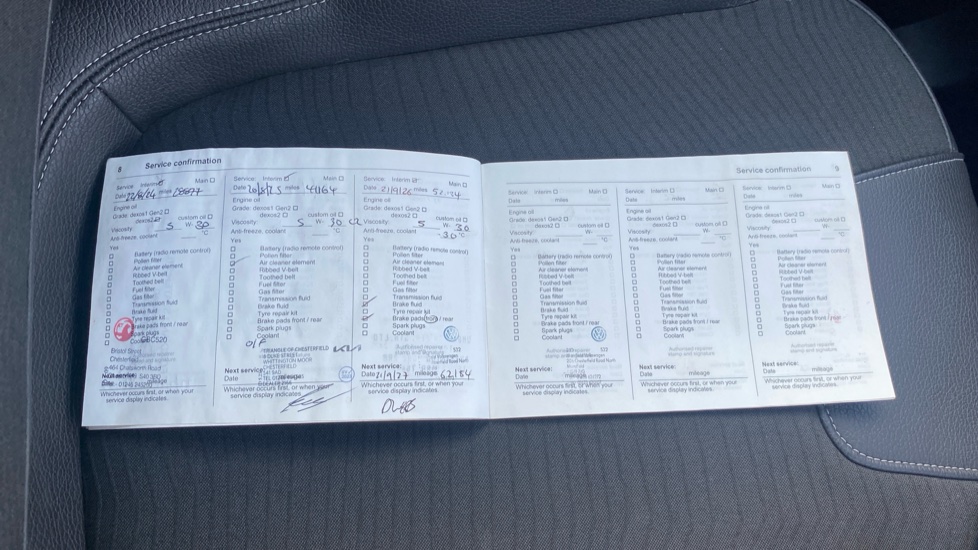 8 Service confirmation
Service: Interim Main
Date 22/8/24 miles
Engine oil
Grade: dexos1 Gen2 custom oil
dexos2
Viscosity: 5 W- 30
Anti-freeze, coolant °C
Yes
Battery (radio remote control)
Pollen filter
Air cleaner element
Ribbed V-belt
Toothed belt
Fuel filter
Gas filter
Transmission fluid
Brake fluid
Tyre repair kit
Brake pads front / rear
Spark plugs
Coolant
Bristol Street
Chesterfield
464 Chatsworth Road
Next service:
Date mileage
Whichever occurs first, or when your
service display indicates.
Service: Interim Main
Date 20/8/25 miles 41164
Engine oil
Grade: dexos1 Gen2 custom oil
dexos2
Viscosity: 5 W- 30
Anti-freeze, coolant °C
Yes
Battery (radio remote control)
Pollen filter
Air cleaner element
Ribbed V-belt
Toothed belt
Fuel filter
Gas filter
Transmission fluid
Brake fluid
Tyre repair kit
Brake pads front / rear
Spark plugs
Coolant
O/F
TRIANGLE OF CHESTERFIELD KIA
WHITTINGTON MOOR
CHESTERFIELD
Next service:
Date
Whichever occurs first, or when your
service display indicates.
Service: Interim Main
Date 21/9/26 miles
Engine oil
Grade: dexos1 Gen2 custom oil
dexos2
Viscosity: 5 W- 30
Anti-freeze, coolant -30 °C
Yes
Battery (radio remote control)
Pollen filter
Air cleaner element
Ribbed V-belt
Toothed belt
Fuel filter
Gas filter
Transmission fluid
Brake fluid
Tyre repair kit
Brake pads front / rear
Spark plugs
Coolant
Authorised repairer
stamp and signature
Next service:
Date 21/9/27 mileage 62154
Whichever occurs first, or when your
service display indicates.
Service confirmation 9
Service: Interim Main
Date miles
Engine oil
Grade: dexos1 Gen2 custom oil
dexos2
Viscosity: W-
Anti-freeze, coolant °C
Yes
Battery (radio remote control)
Pollen filter
Air cleaner element
Ribbed V-belt
Toothed belt
Fuel filter
Gas filter
Transmission fluid
Brake fluid
Tyre repair kit
Brake pads front / rear
Spark plugs
Coolant
Next service:
Date mileage
Whichever occurs first, or when your
service display indicates.
Service: Interim Main
Date miles
Engine oil
Grade: dexos1 Gen2 custom oil
dexos2
Viscosity: W-
Anti-freeze, coolant °C
Yes
Battery (radio remote control)
Pollen filter
Air cleaner element
Ribbed V-belt
Toothed belt
Fuel filter
Gas filter
Transmission fluid
Brake fluid
Tyre repair kit
Brake pads front / rear
Spark plugs
Coolant
Authorised repairer
stamp and signature
Next service:
Date mileage
Whichever occurs first, or when your
service display indicates.
Service: Interim Main
Date miles
Engine oil
Grade: dexos1 Gen2 custom oil
dexos2
Viscosity: W-
Anti-freeze, coolant °C
Yes
Battery (radio remote control)
Pollen filter
Air cleaner element
Ribbed V-belt
Toothed belt
Fuel filter
Gas filter
Transmission fluid
Brake fluid
Tyre repair kit
Brake pads front / rear
Spark plugs
Coolant
Authorised repairer
stamp and signature
Next service:
Date mileage
Whichever occurs first, or when your
service display indicates.